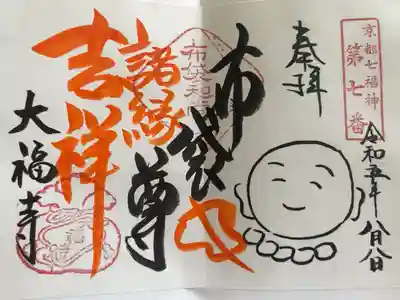 京都七福神
第七番
奉拝
令和五年八月八日
布袋尊
布袋和尚
諸縁
吉祥
大福寺